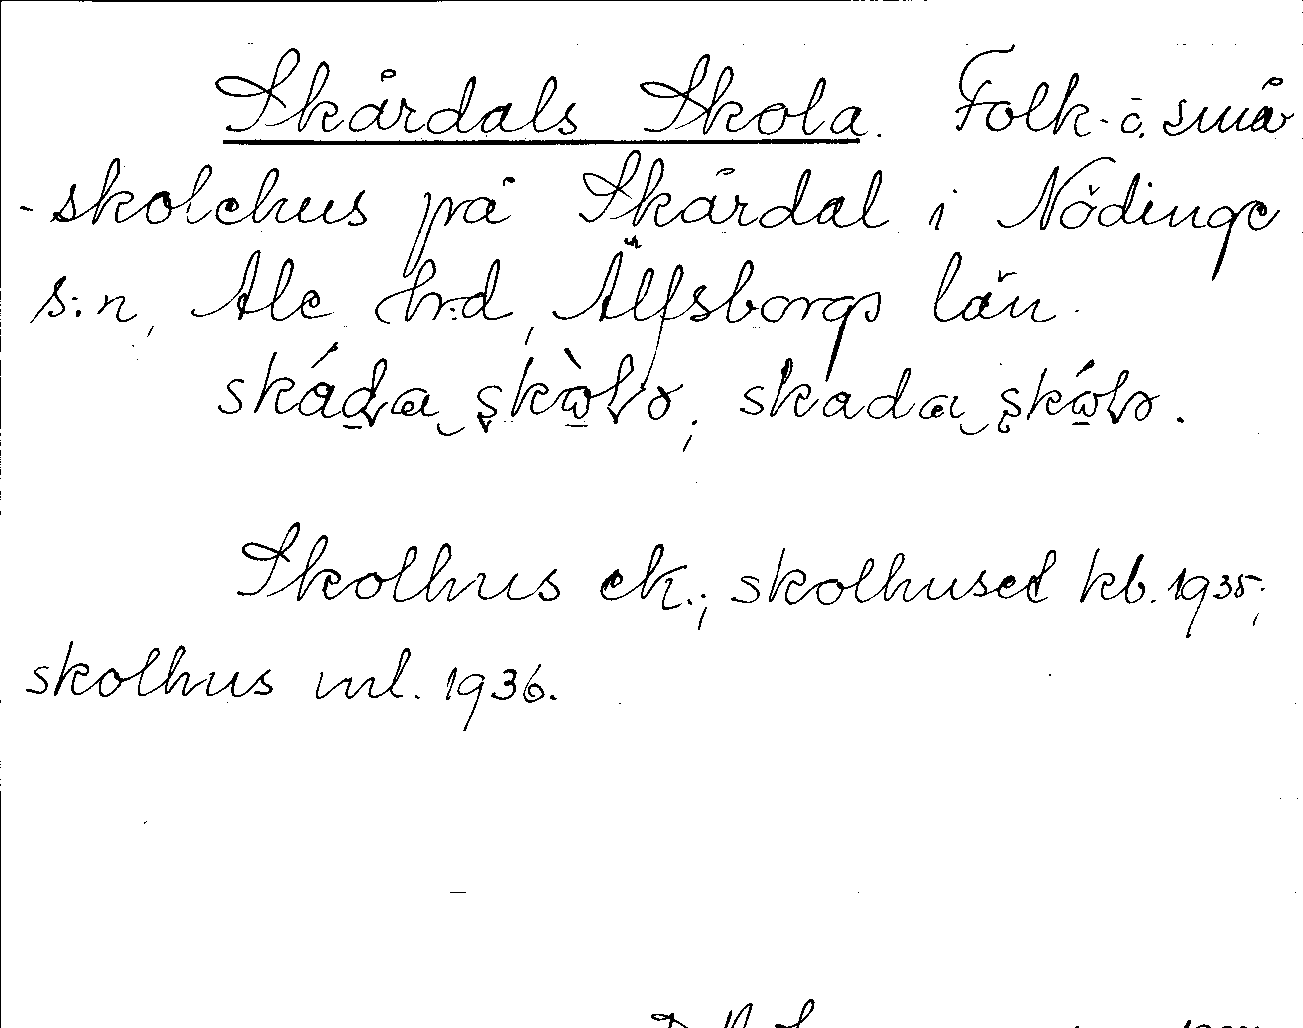 Skårdals Skola. Folk- o. små
-skolehus på Skårdal i Nödinge
s:n, Ale hrd, Älfsborgs län.
Skolhus ek.; skolhused kb. 1935;
skolhus ml. 1936.